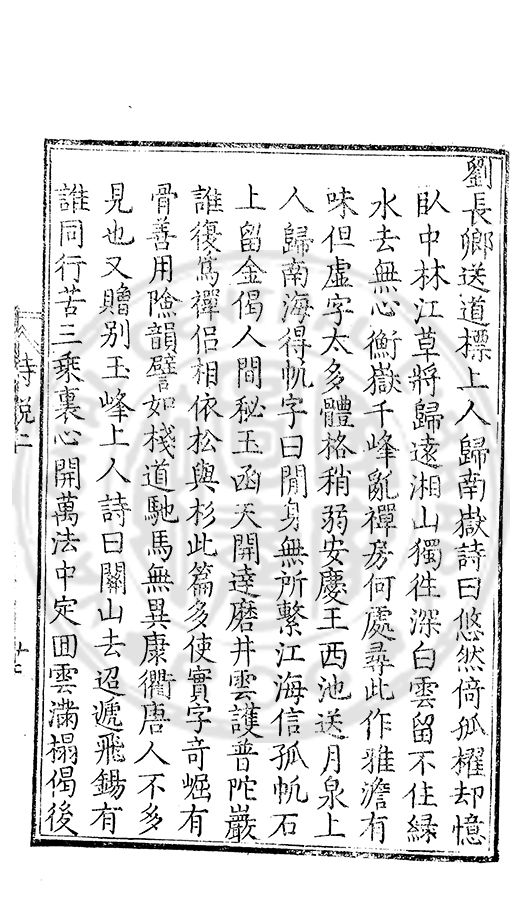 劉長卿送道標上人歸南嶽詩曰悠然倚孤櫂却憶
臥中林江草將歸遠湘山獨徃深白雲留不住緑
水去無心衡嶽千峰亂禪房何處尋此作雅澹有
味但虛字太多體格稍弱安慶王西池送月泉上
人歸南海得帆字曰閒身無所繫江海信孤帆石
上留金偈人間秘玉函天開達磨井雲護普陀巖
誰復爲禪侣相依松與杉此篇多使實字竒崛有
骨善用險韻譬如棧道馳馬無異康衢唐人不多
見也又贈别玉峰上人詩曰關山去迢遞飛錫有
誰同行苦三乘裏心開萬法中定囬雲滿榻偈後
詩説二